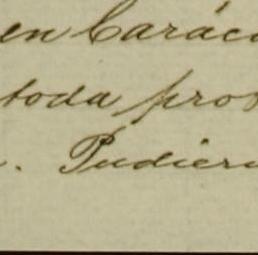 en Carác
toda pro
. Pudier